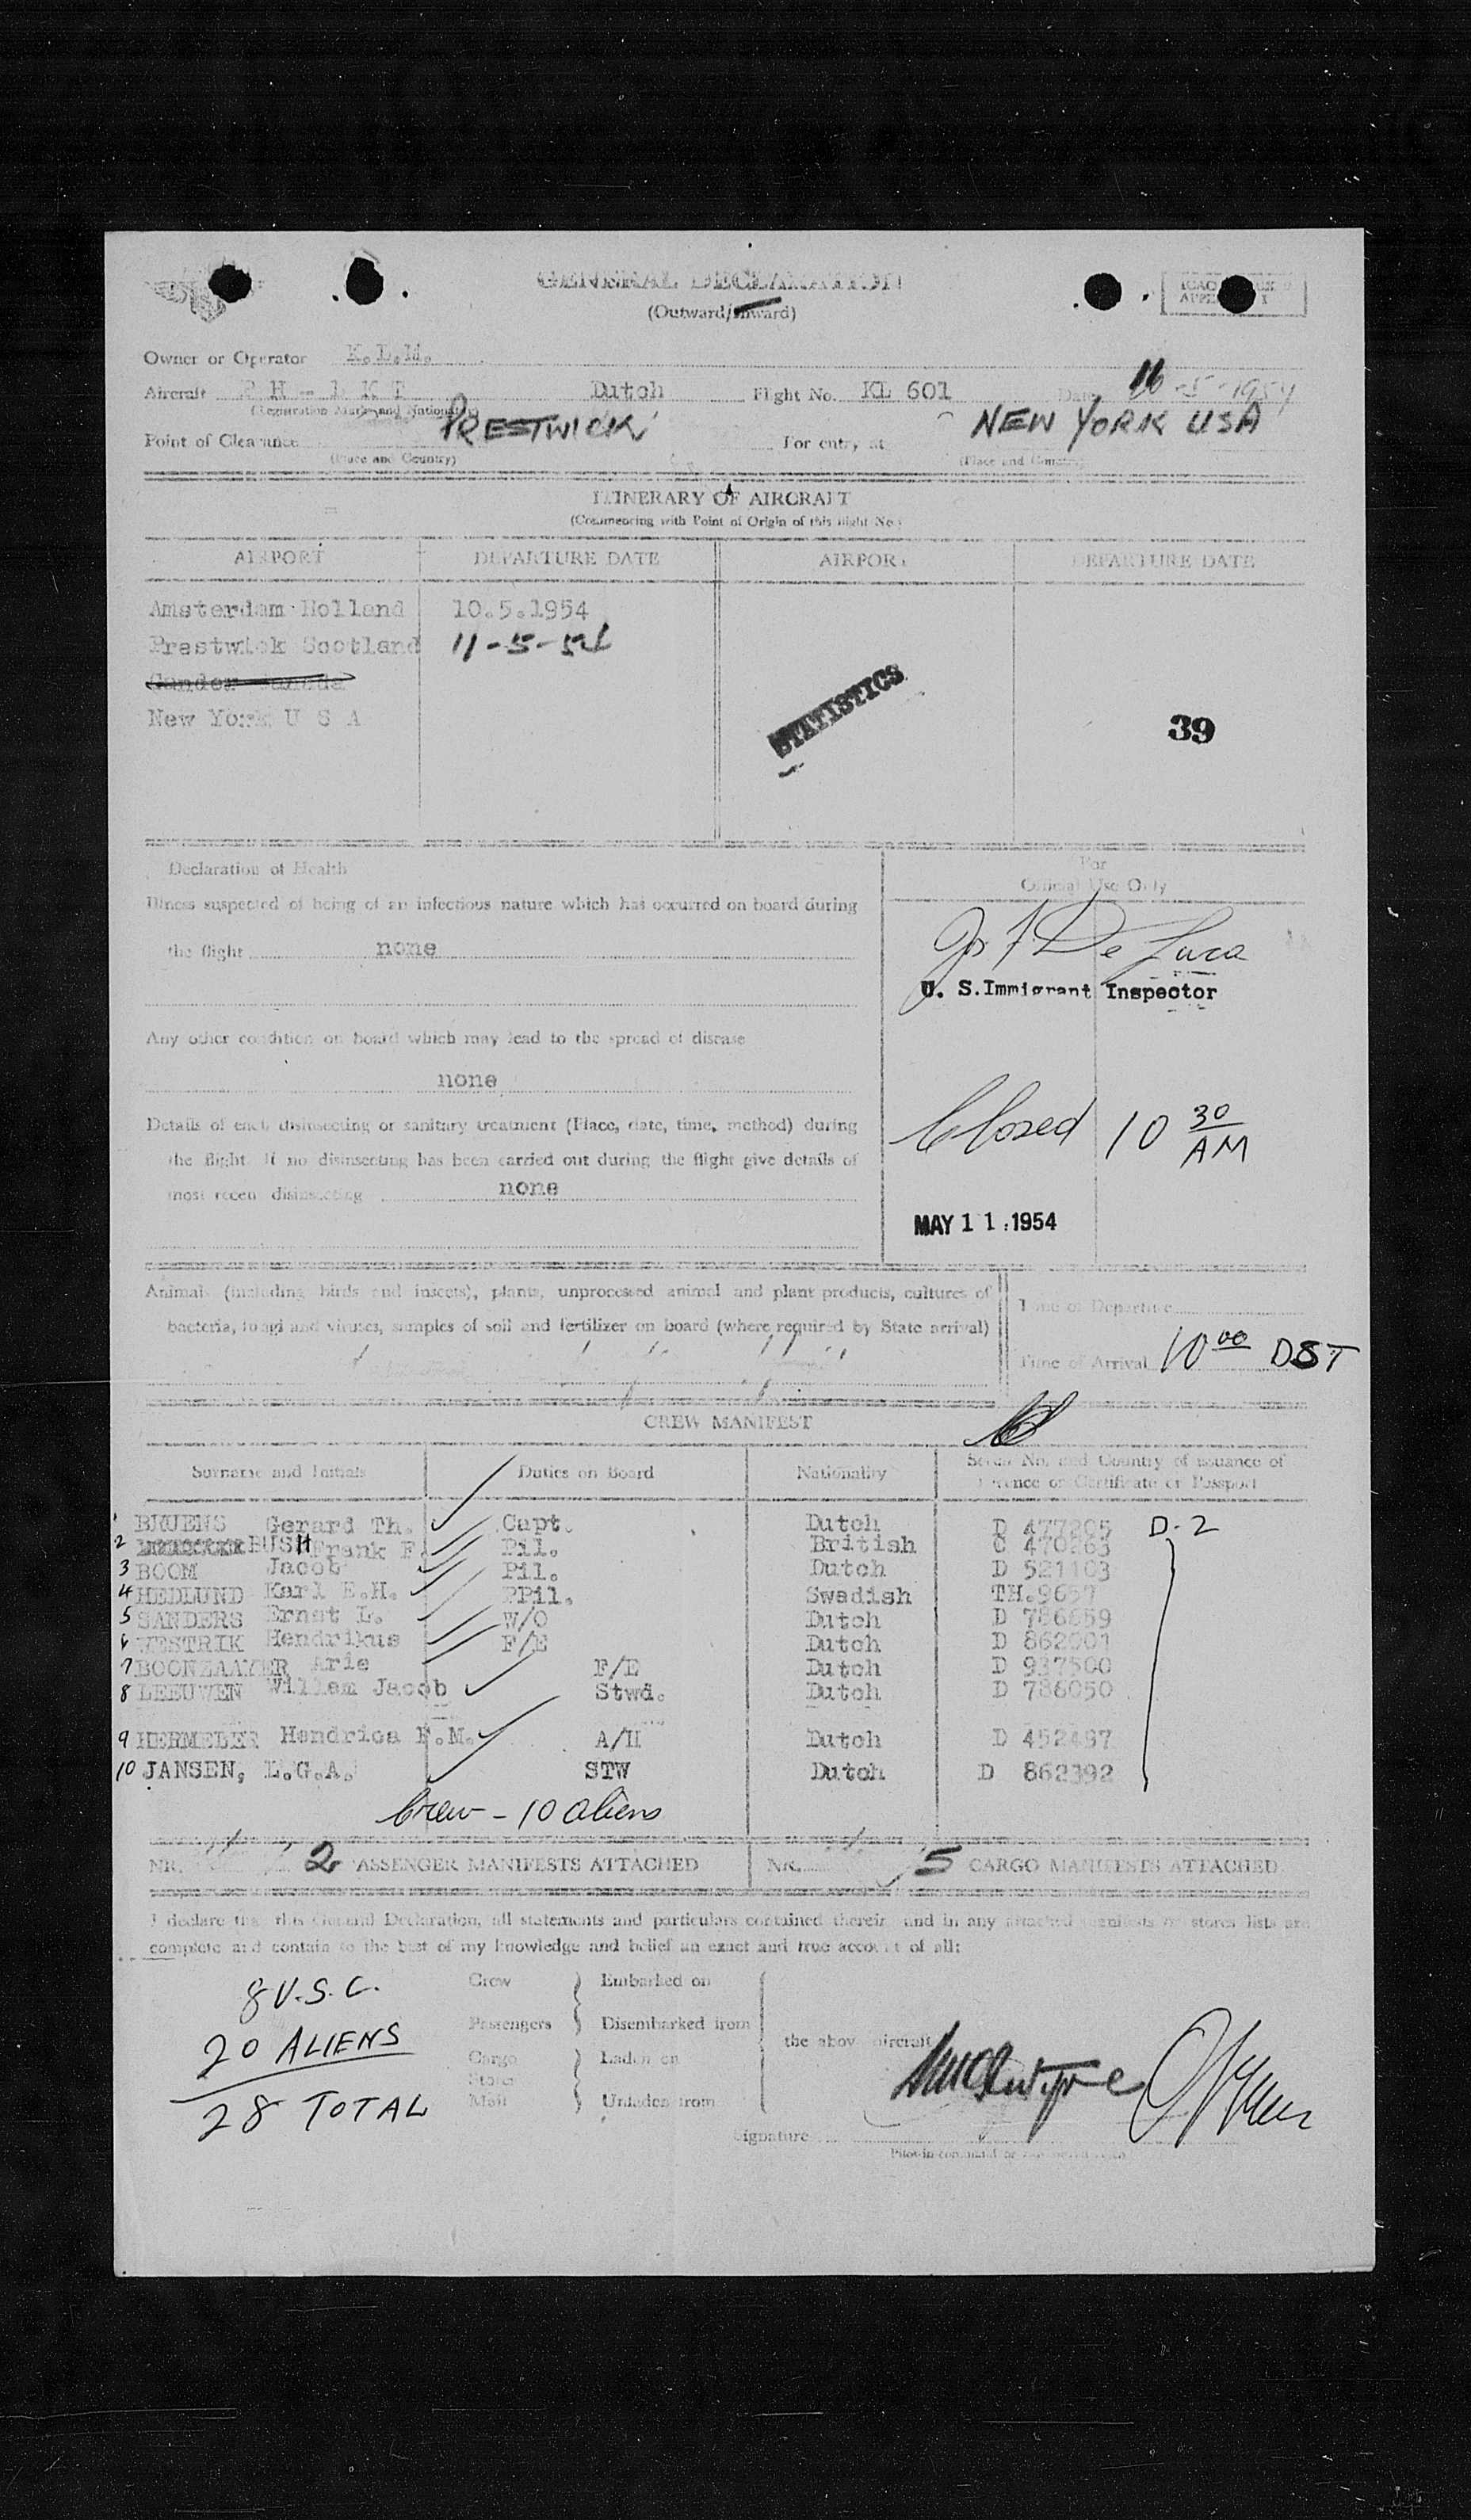 GENERAL DECLARATION
(Outward/Inward)
Owner or Operator K.L.M.
Aircraft Dutch Flight No. KL 601 Date -5-1954
(Registration Marks and Nationality)
Point of Clearance PRESTWICK For entry at NEW YORK USA
(Place and Country) (Place and Country)
ITINERARY OF AIRCRAFT
(Commencing with Point of Origin of this flight No)
AIRPORT DEPARTURE DATE AIRPORT DEPARTURE DATE
Amsterdam Holland 10.5.1954
Prestwick Scotland 11-5-54
Gander Canada
New York U S A
STATISTICS
39
Declaration of Health
For
Official Use Only
Illness suspected of being of an infectious nature which has occurred on board during
the flight none
Jos F. De Luca
U. S. Immigrant Inspector
Any other condition on board which may lead to the spread of disease
none
Details of each disinsecting or sanitary treatment (Place, date, time, method) during
the flight. If no disinsecting has been carried out during the flight give details of
most recent disinsecting none
Closed 10 30 AM
MAY 11 1954
Animals (including birds and insects), plants, unprocessed animal and plant products, cultures of
bacteria, fungi and viruses, samples of soil and fertilizer on board (where required by State arrival)
Time of Departure
Time of Arrival 10 00 DST
CREW MANIFEST
Surname and Initials Duties on Board Nationality Serial No. and Country of issuance of
Licence or Certificate or Passport
1 BRUENS Gerard Th. Capt. Dutch D 477205 D-2
2 BUSH Frank F. Pil. British C 470263
3 BOOM Jacob Pil. Dutch D 521103
4 HEDLUND Karl E.H. PPil. Swedish TH.9657
5 SANDERS Ernst L. W/O Dutch D 786659
6 WESTRIK Hendrikus F/E Dutch D 862001
7 BOONZAAYER Arie F/E Dutch D 937500
8 LEEUWEN Willem Jacob Stwd. Dutch D 786050
9 HERMELER Hendrica F.M. A/H Dutch D 452487
10 JANSEN, L.G.A. STW Dutch D 862392
Crew - 10 aliens
NR. 2 PASSENGER MANIFESTS ATTACHED NR. 5 CARGO MANIFESTS ATTACHED
I declare that this General Declaration, all statements and particulars contained therein, and in any attached manifests or stores lists are
complete and contain to the best of my knowledge and belief an exact and true account of all:
8 U.S.C.
20 ALIENS
28 TOTAL
Crew Embarked on
Passengers Disembarked from
the above aircraft
Cargo Laden on
Stores
Mail Unladen from
Signature